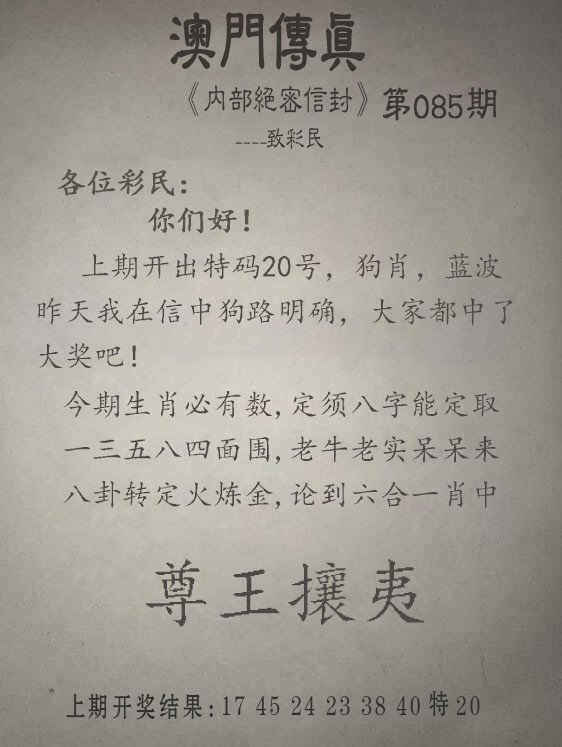 澳門傳眞
《内部絕密信封》第085期
----致彩民
各位彩民：
你们好！
上期开出特码20号，狗肖，蓝波
昨天我在信中狗路明确，大家都中了
大奖吧！
今期生肖必有数,定须八字能定取
一三五八四面围,老牛老实呆呆来
八卦转定火炼金,论到六合一肖中
尊王攘夷
上期开奖结果:17 45 24 23 38 40 特20